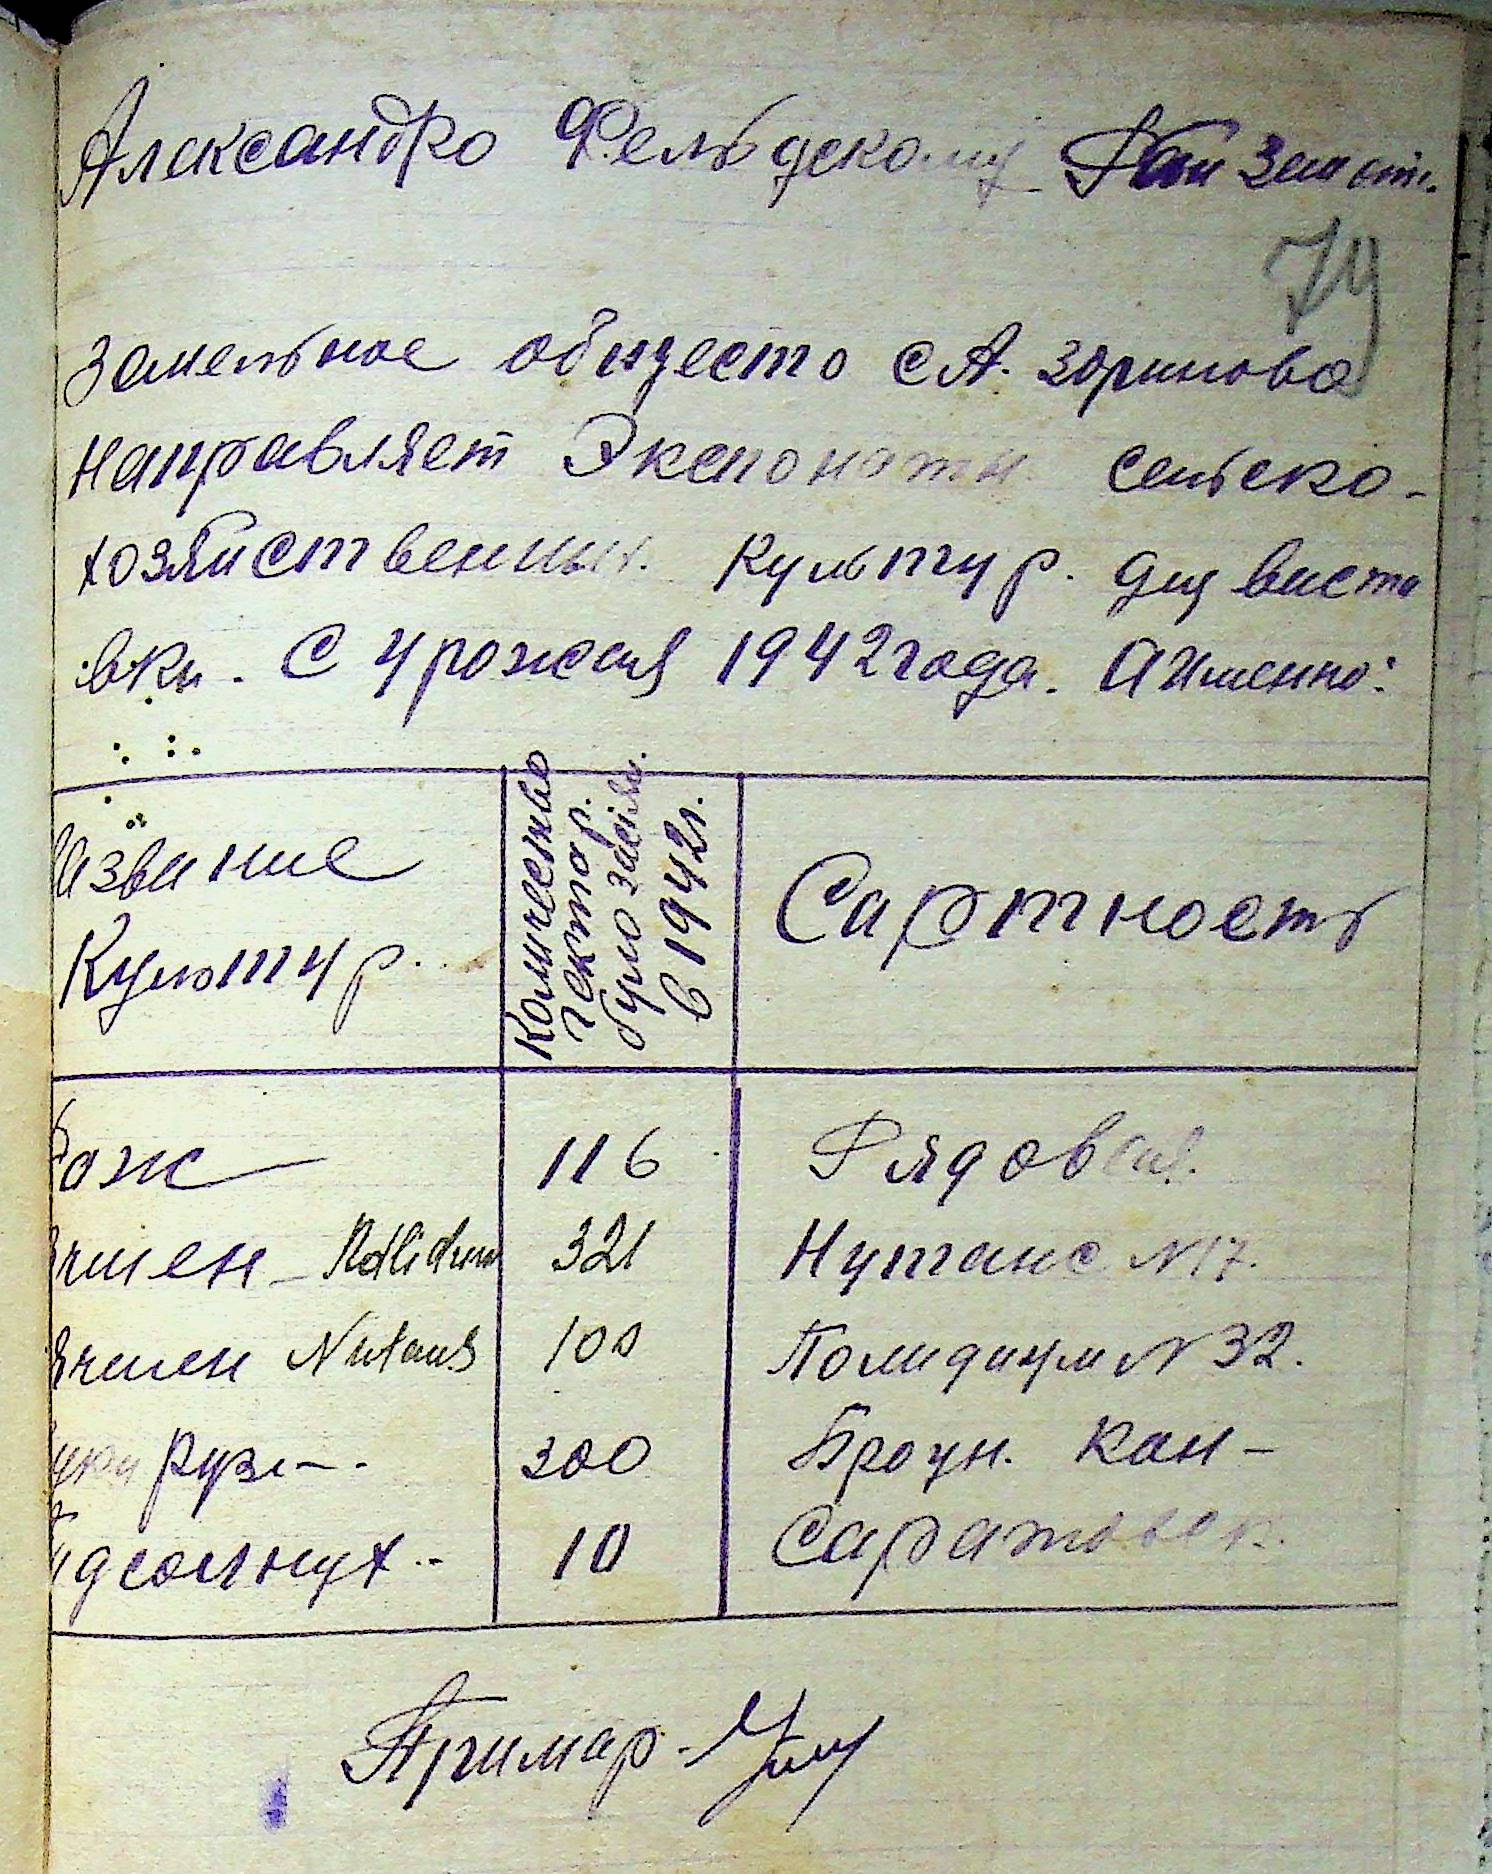 Александро Фельдскому Рай Зем от.
79
Земельное общесто с А. Зоринова
направляет Экспонаты сельско-
хозяйственных культур. для виста
вки. С урожая 1942 года. А именно:
азвание
Культур.
Количество
гектар.
було засіян.
в 1942 г.
Сартность
Рож
116
Рядовая.
ячмен - Pallidum
321
Нутанс N 17.
Ячмен Nutans
100
Полидиум N 32.
укурузы
300
Броун. Кан-
идсолнух
10
Саратовск.
Примар